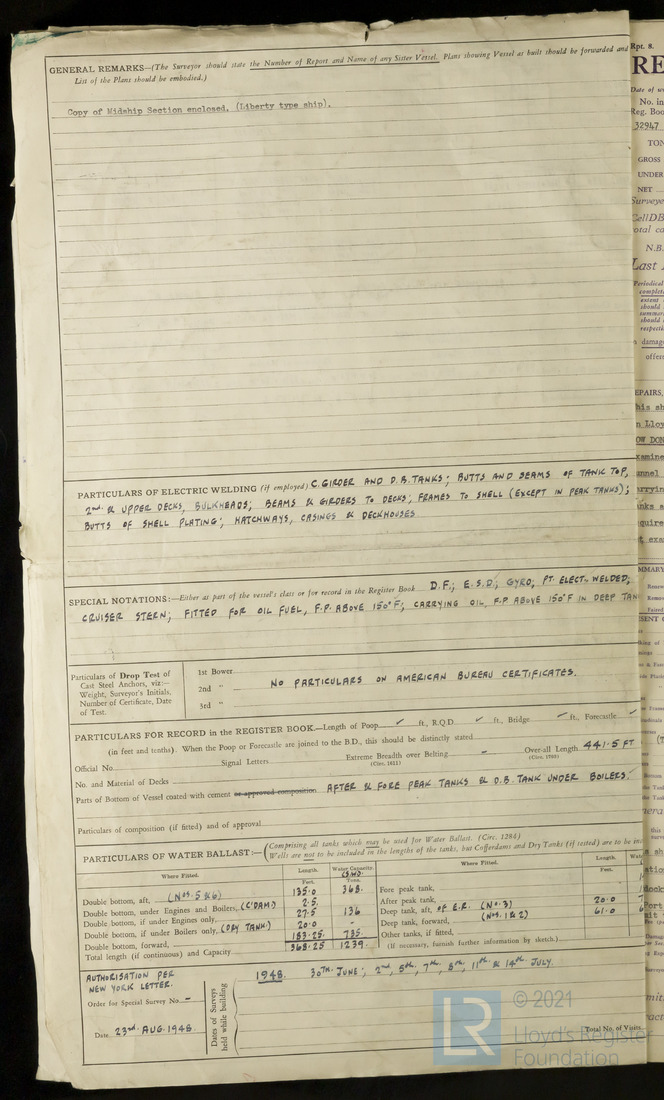 GENERAL REMARKS—(The Surveyor should state the Number of Report and Name of any Sister Vessel. Plans showing Vessel as built should be forwarded and
List of the Plans should be embodied.)
Copy of Midship Section enclosed. (Liberty type ship).
PARTICULARS OF ELECTRIC WELDING (if employed) C. GIRDER AND D.B. TANKS; BUTTS AND SEAMS OF TANK TOP,
2nd & UPPER DECKS, BULKHEADS; BEAMS & GIRDERS TO DECKS; FRAMES TO SHELL (EXCEPT IN PEAK TANKS);
BUTTS OF SHELL PLATING; HATCHWAYS, CASINGS & DECKHOUSES
SPECIAL NOTATIONS:—Either as part of the vessel's class or for record in the Register Book D.F.; E.S.D.; GYRO; PT. ELECT. WELDED;
CRUISER STERN; FITTED FOR OIL FUEL, F.P. ABOVE 150°F; CARRYING OIL, F.P. ABOVE 150°F IN DEEP TAN
Particulars of Drop Test of
Cast Steel Anchors, viz:—
Weight, Surveyor's Initials,
Number of Certificate, Date
of Test.
1st Bower
2nd "
3rd "
NO PARTICULARS ON AMERICAN BUREAU CERTIFICATES.
PARTICULARS FOR RECORD in the REGISTER BOOK.—Length of Poop ✓ ft., R.Q.D. ✓ ft., Bridge ✓ ft., Forecastle ✓
(in feet and tenths). When the Poop or Forecastle are joined to the B.D., this should be distinctly stated
Official No. Signal Letters Extreme Breadth over Belting - Over-all Length 441.5 FT
(Circ. 1611)
No. and Material of Decks
Parts of Bottom of Vessel coated with cement or approved composition AFTER & FORE PEAK TANKS & D.B. TANK UNDER BOILERS.
Particulars of composition (if fitted) and of approval
PARTICULARS OF WATER BALLAST:— (Comprising all tanks which may be used for Water Ballast. (Circ. 1284)
Wells are not to be included in the lengths of the tanks, but Cofferdams and Dry Tanks (if tested) are to be
Where Fitted. Length. Water Capacity. Where Fitted. Length.
Feet. Tons. Feet.
Double bottom, aft, (Nos. 5 & 6) 135.0 368.
Double bottom, under Engines and Boilers, (C'DAM) 2.5
Double bottom, if under Engines only, 27.5 136
Double bottom, if under Boilers only, (DRY TANK) 20.0 -
Double bottom, forward, 183.25 735.
Total length (if continuous) and Capacity 368.25 1239.
Fore peak tank,
After peak tank,
Deep tank, aft, OF E.R. (No. 3) 20.0
Deep tank, forward, (Nos. 1 & 2) 61.0
Other tanks, if fitted,
(If necessary, furnish further information by sketch.)
AUTHORISATION PER
NEW YORK LETTER.
Order for Special Survey No. -
Date 23rd. AUG. 1948.
Dates of Surveys
held while building
1948. 30TH. JUNE; 2nd, 5th, 7th, 8th, 11th & 14th JULY.
Total No. of Visits
Rpt. 8.
RE
No. in
Reg. Boo
32947
TON
GROSS
UNDER
NET
Surveye
CellDB
otal ca
N.B.
Last
Periodical
LR
© 2021
Lloyd's Register
Foundation